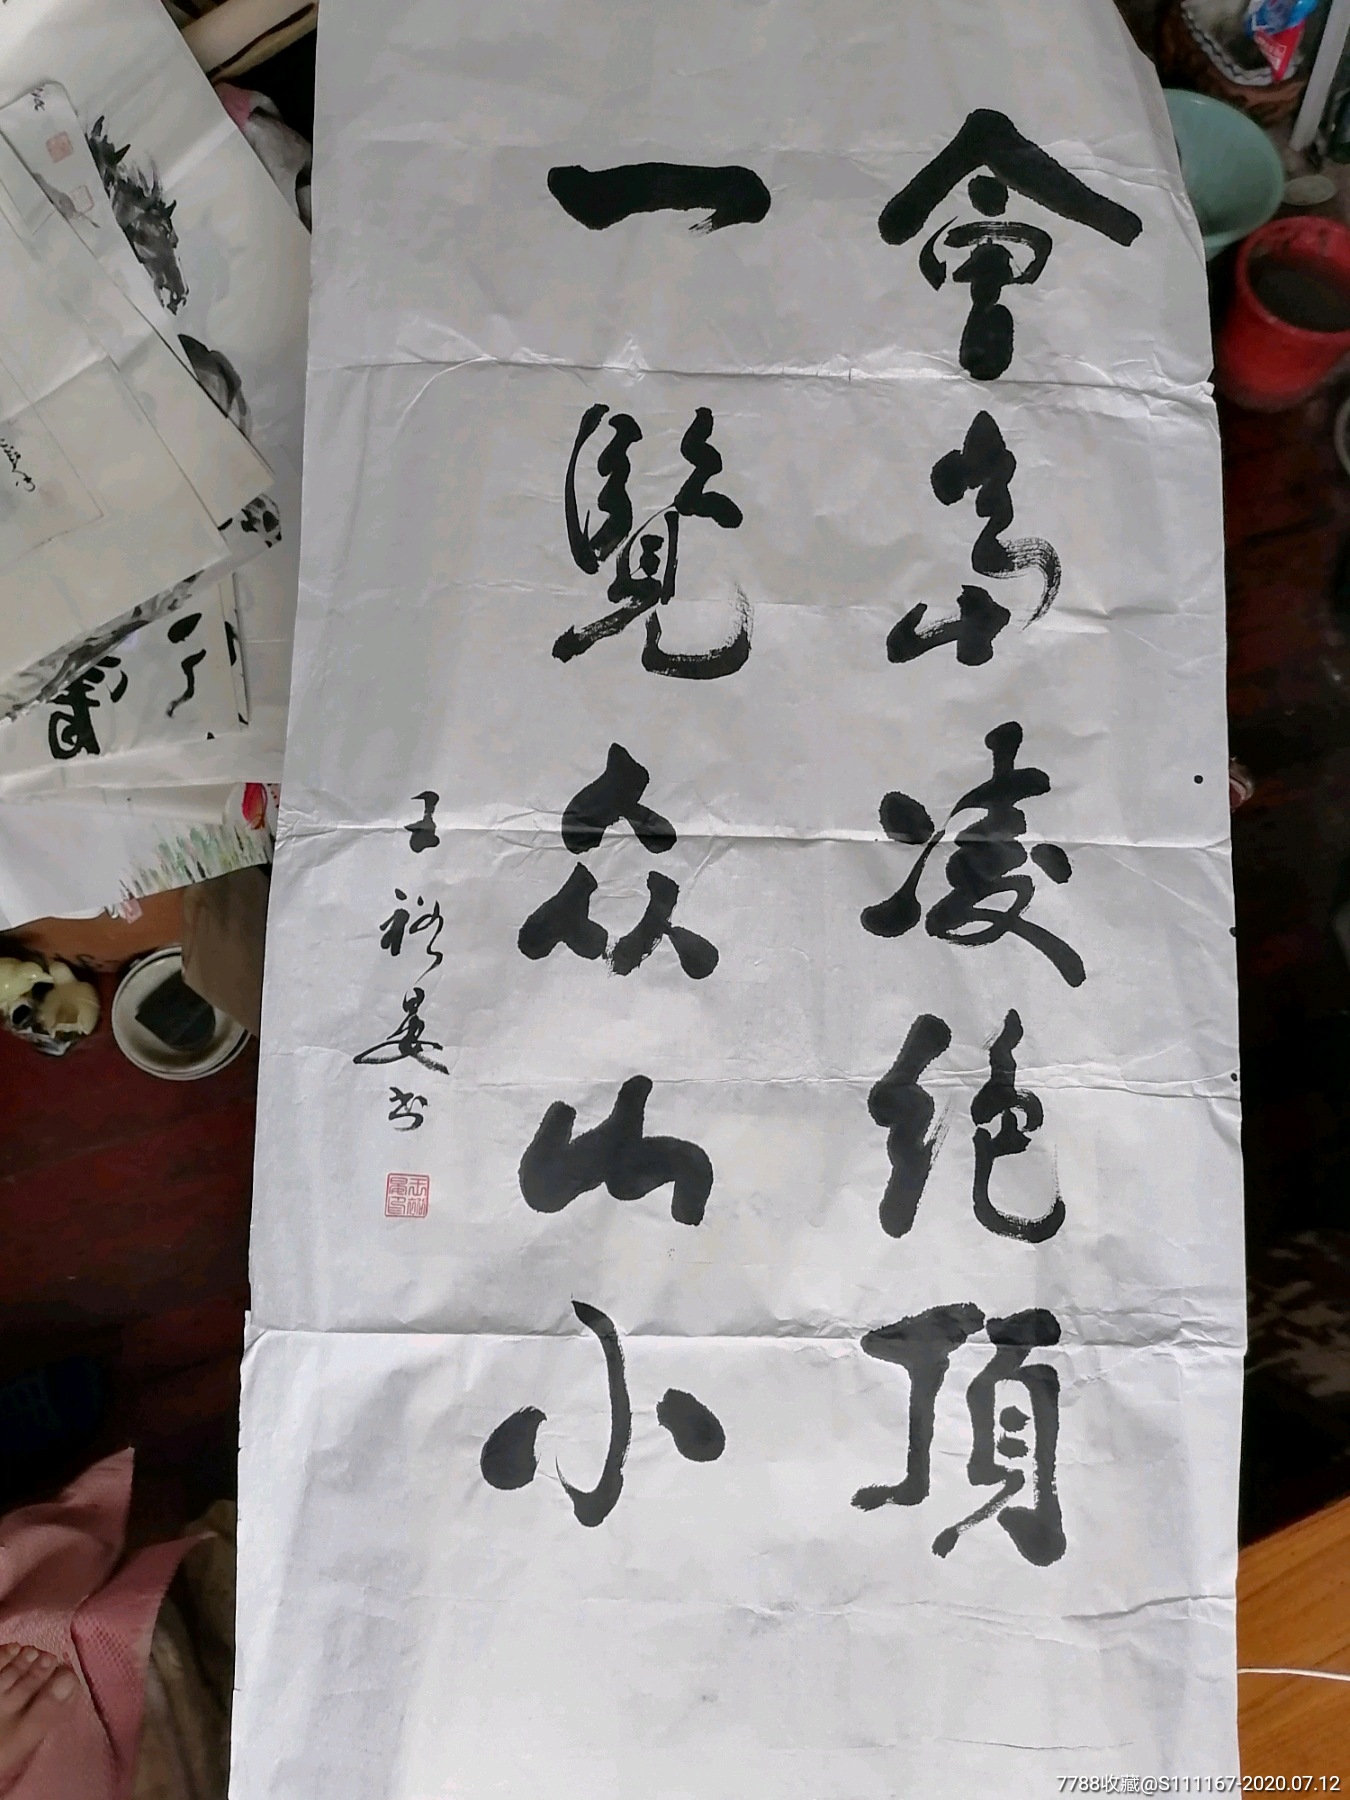 會當凌絕頂
一覽众山小
王裕晏书
7788收藏@S111167-2020.07.12